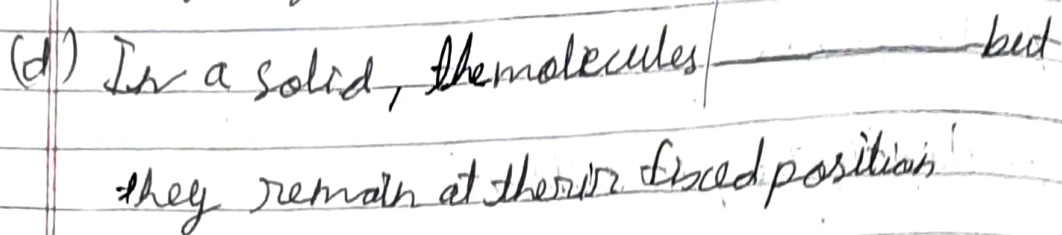 (d) In a solid, the molecules ______ but
they remain at their fixed position